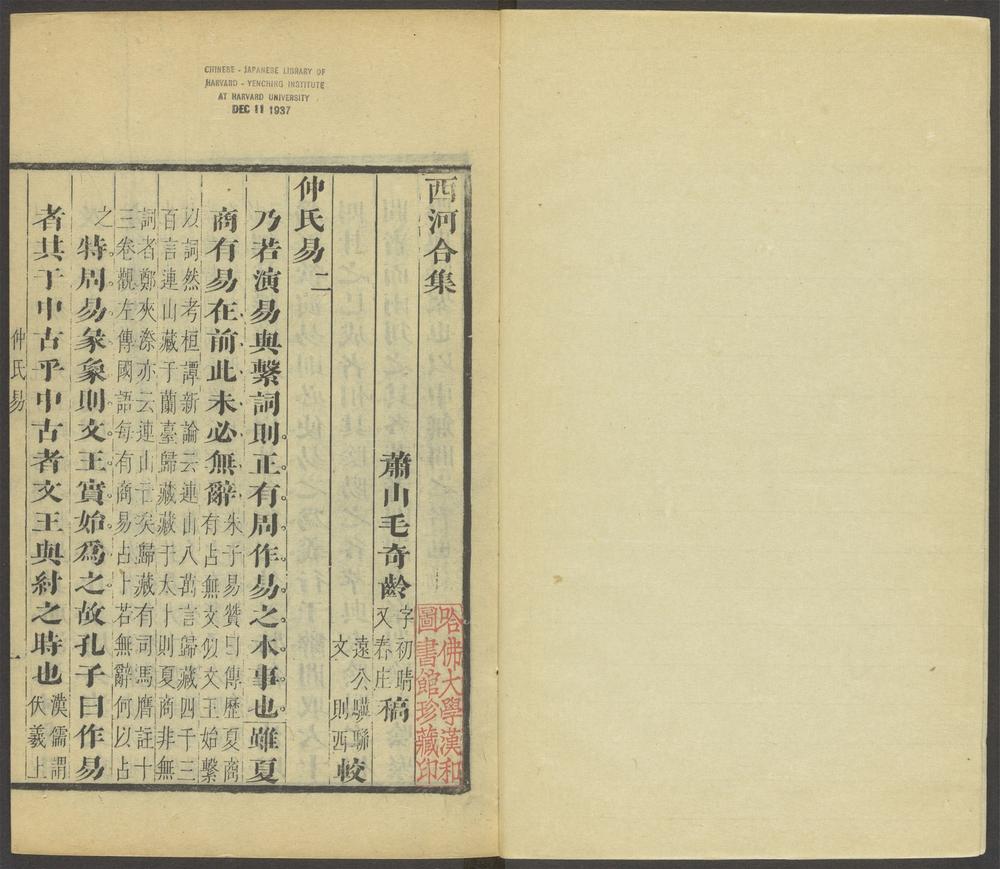 CHINESE - JAPANESE LIBRARY OF
HARVARD - YENCHING INSTITUTE
AT HARVARD UNIVERSITY
DEC 11 1937
哈佛大學漢和
圖書館珍藏印
西河合集
蕭山毛奇齡字初晴又春庄稿
遠公驥聯文則西較
仲氏易二
乃若演易與繫詞則正有周作易之本事也雖夏
商有易在前此未必無辭朱子易贊曰傳歷夏商
有占無文似文王始繫
以詞然考桓譚新論云連山八萬言歸藏四千三
百言連山藏于蘭臺歸藏藏于太卜則夏商非無
詞者鄭夾漈亦云連山亡矣歸藏有司馬膺註十
三卷觀左傳國語每有商易占卜若無辭何以占
之特周易彖象則文王實始爲之故孔子曰作易
者其于中古乎中古者文王與紂之時也漢儒謂
伏羲上
仲氏易
一